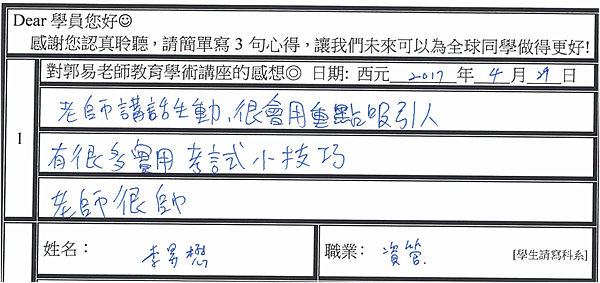 Dear 學員您好☺
感謝您認真聆聽，請簡單寫 3 句心得，讓我們未來可以為全球同學做得更好!
對郭易老師教育學術講座的感想◎ 日期: 西元 2017 年 4 月 29 日
1
老師講話生動、很會用重點吸引人
有很多實用考試小技巧
老師很帥
姓名： 李易懋 職業： 資管 [學生請寫科系]